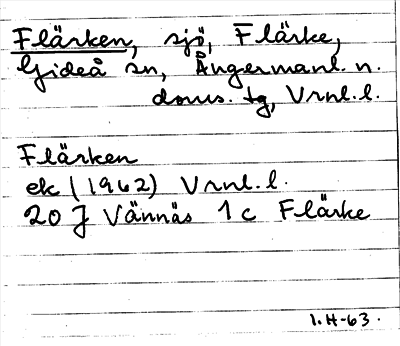 Flärken, sjö, Flärke,
Gideå sn, Ångermanl. n.
doms. tg, Vrnl. l.
Flärken
ek (1962) Vrnl. l.
20 J Vännäs 1 c Flärke
1. H-63.